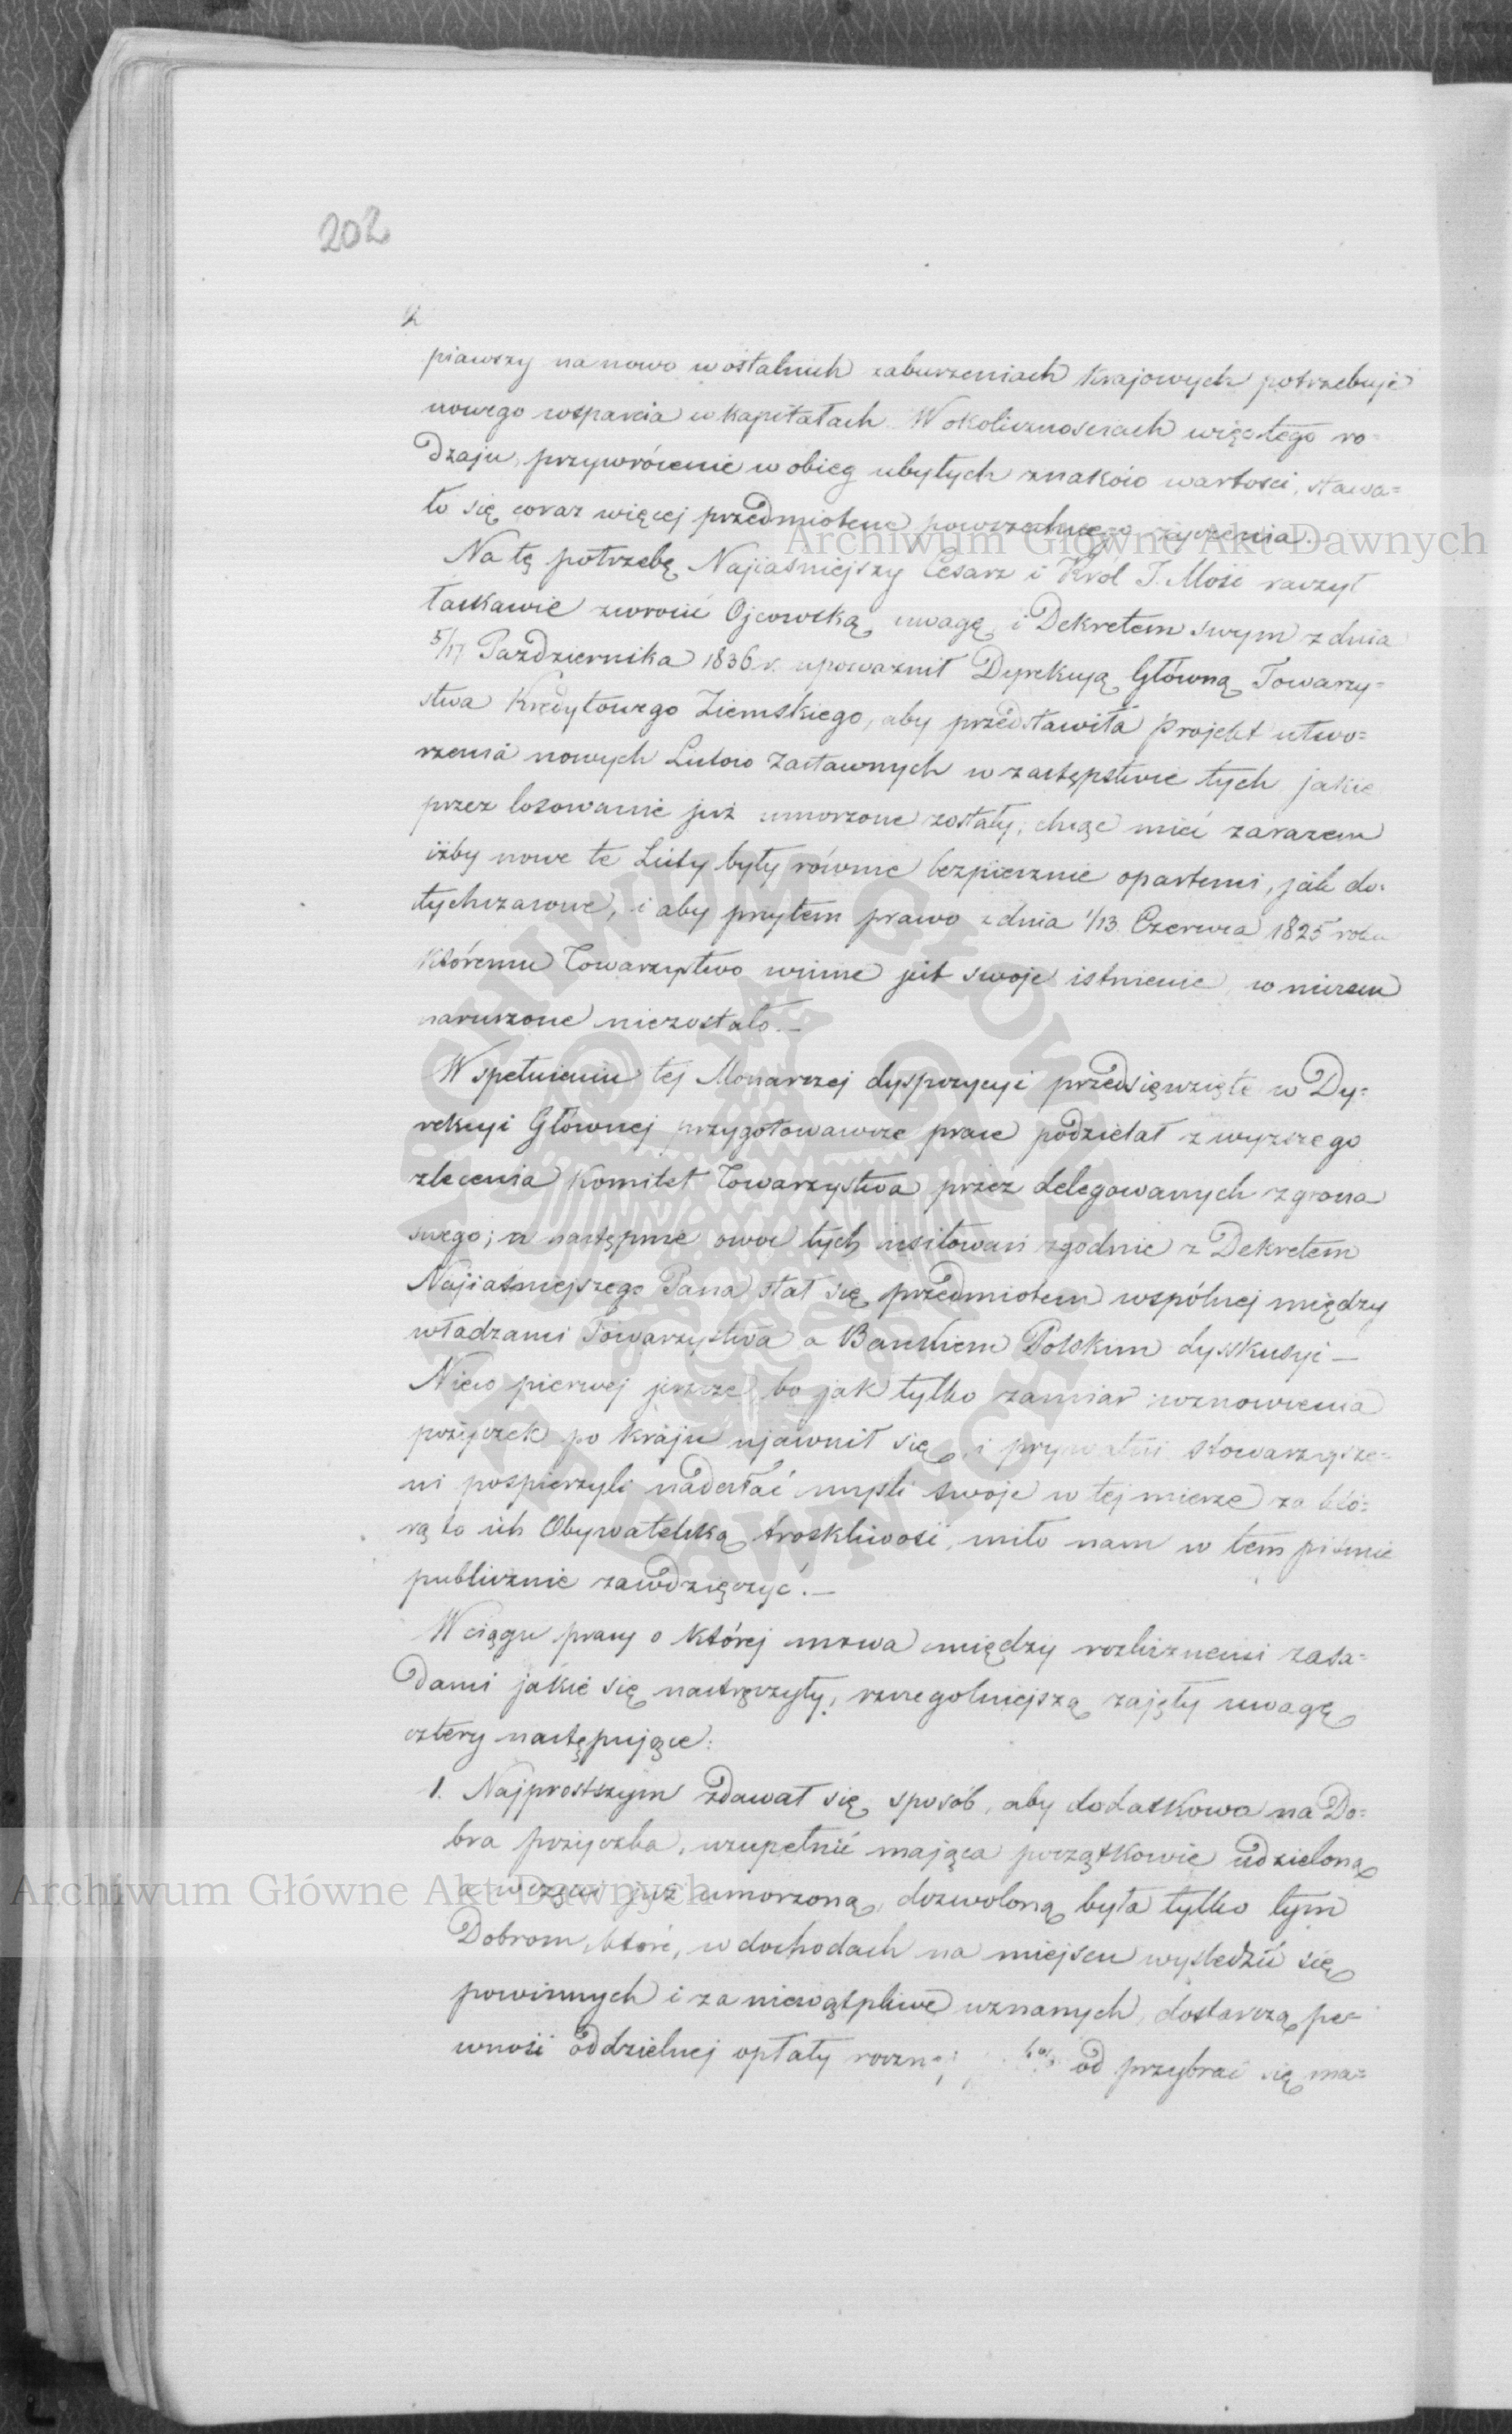 202
2
piawszy na nowo w ostatnich zaburzeniach krajowych potrzebuje
nowego wsparcia w kapitałach. W okolicznościach więc tego ro=
dzaju, przywrócenie w obieg ubyłych znaków wartości, stawa=
ło się coraz więcej przedmiotem powszechnego życzenia.
Archiwum Główne Akt Dawnych
Na tę potrzebę Najjaśniejszy Cesarz i Król J. Mość raczył
łaskawie zwrócić Ojcowską uwagę i Dekretem swym z dnia
5/17 Października 1836 r. upoważnił Dyrekcyą Główną Towarzy=
stwa Kredytowego Ziemskiego, aby przedstawiła projekt utwo=
rzenia nowych Listów Zastawnych w zastępstwie tych jakie
przez losowanie już umorzone zostały; chcąc mieć zarazem
iżby nowe te Listy były równie bezpiecznie opartemi, jak do=
tychczasowe, i aby przytem prawo z dnia 1/13 Czerwca 1825 roku
któremu Towarzystwo winne jest swoje istnienie w niczem
naruszone niezostało.—
W spełnieniu tej Monarszej dyspozycyi przedsięwzięte w Dy=
rekcyi Głównej przygotowawcze prace podzielał z wyższego
zlecenia Komitet Towarzystwa przez delegowanych z grona
swego; a następnie owoc tych usiłowań zgodnie z Dekretem
Najjaśniejszego Pana stał się przedmiotem wspólnej między
władzami Towarzystwa a Bankiem Polskim dysskusyi —
Nieco pierwej jeszcze bo jak tylko zamiar wznowienia
pożyczek po kraju ujawnił się, i prywatni stowarzysze=
ni pospieszyli nadesłać myśli swoje w tej mierze za któ=
rą to ich Obywatelską troskliwość, miło nam w tem piśmie
publicznie zawdzięczyć.—
W ciągu pracy o której mowa między rozlicznemi zasa=
dami jakie się nastręczyły, szczególniejszą zajęły uwagę
cztery następujące:
1. Najprostszym zdawał się sposób, aby dodatkowa na Do=
bra pożyczka, uzupełnić mająca początkowie udzieloną
a w części już umorzoną, dozwoloną była tylko tym
Archiwum Główne Akt Dawnych
Dobrom, które, w dochodach na miejscu wyśledzić się
powinnych i za niewątpliwe uznanych, dostarczą pe=
wność oddzielnej opłaty roczn od przybrać się ma=
ARCHIWUM GŁÓWNE AKT DAWNYCH